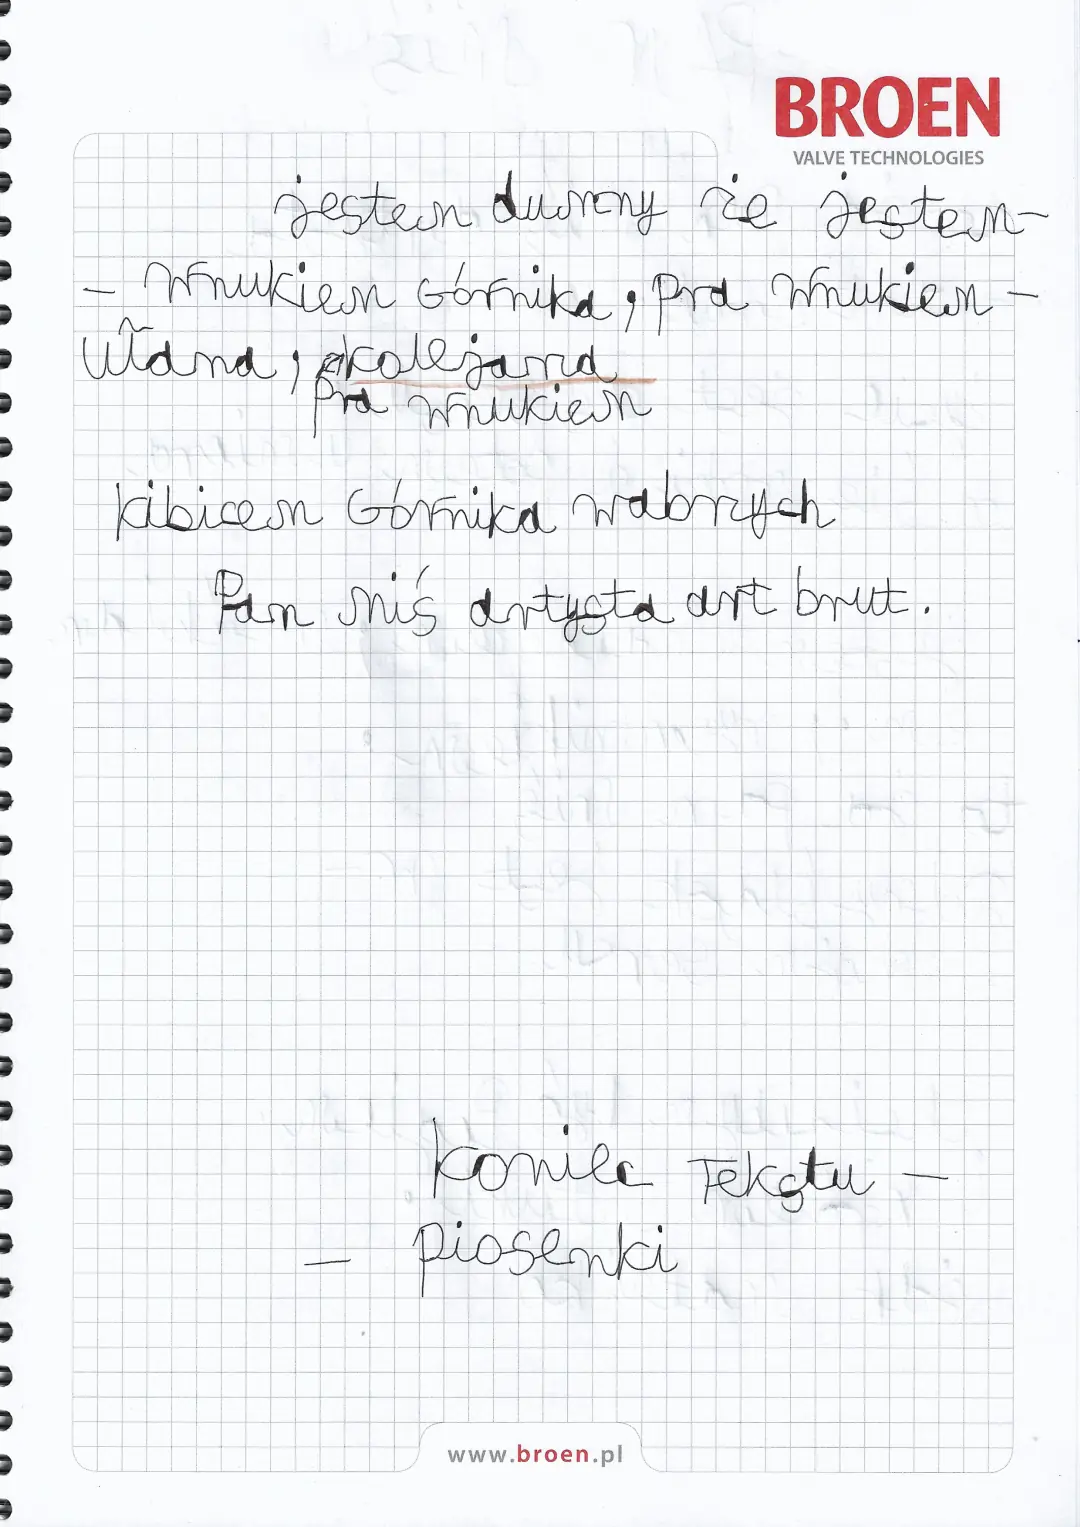 BROEN
VALVE TECHNOLOGIES
jestem dumny że jestem-
- wnukiem Górnika, pra wnukiem -
ułana, kolejarza
pra wnukiem
kibicem Górnika wabrzych
Pan miś artysta art brut.
koniec Tekstu -
- piosenki
www.broen.pl